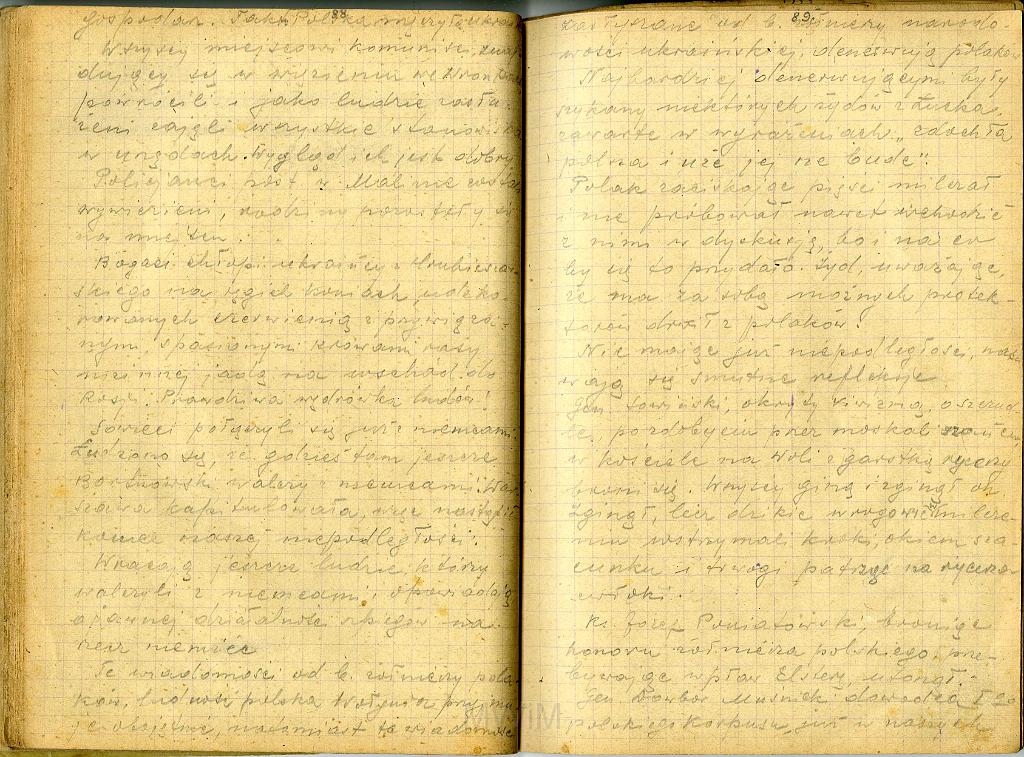 88
gospodar. Taką Polska
Wszyscy miejscowi komuniści, znaj
dujący się w więzieniu we Wronkach
powrócili i jako ludzie zasłu-
żeni zajęli wszystkie stanowiska
w urzędach. Wygląd ich jest dobry
Policjanci post. w Malinie zosta
wywiezieni, rodziny pozostały
na miejscu.
Bogaci chłopi ukraińcy z Hrubieszow-
skiego na tęgich koniach, udeko-
rowanych czerwienią z przywiąza-
nymi, spasionymi krowami rasy
nizinnej jadą na wschód do
Rosji. Prawdziwa wędrówka ludów!
Sowieci połączyli się już z niemcami.
Łudzono się, że gdzieś tam jeszcze
Bortnowski walczy z niemcami. War
szawa kapitulowała, więc nastąpił
koniec naszej niepodległości.
Wracają jeszcze ludzie, którzy
walczyli z niemcami i opowiadają
o jawnej działalności szpiegów na
rzecz niemiec
Te wiadomości od b. żołnierzy pola
ków, ludność polska Wołynia przyjmu
je obojętnie, natomiast te wiadomości
89.
zasłyszane od b. żołnierzy narodo-
wości ukraińskiej, denerwują polaków
Najbardziej denerwującymi były
szykany niektórych żydów z Łucka,
zawarte w wyrażeniach „zdochła
polsza i uże jej ne bude".
Polak zaciskając pięści milczał
i nie próbował nawet wchodzić
z nimi w dyskusję, bo i na co
by się to przydało. Żyd, uważając,
że ma za sobą możnych protek-
torów drwił z polaków.
Nie mając już niepodległości, nasu
wają się smutne refleksje
Gen Sowiński, okryty siwizną, o szczud
le, po zdobyciu przez moskali szańców
w kościele na Woli z garstką rycerzy
broni się. Wszyscy giną i zginął on
Zginął, lecz dzikie wrogowie w milcze-
niu wstrzymali kroki, okiem sza-
cunku i trwogi patrząc na rycerza
zwłoki.
Ks. Józef Poniatowski, broniąc
honoru żołnierza polskiego, prze-
bywając wpław Elsterę, utonął.
Gen Dowbór Muśnicki dowódca I go
polskiego korpusu, już w naszych
MWTIM